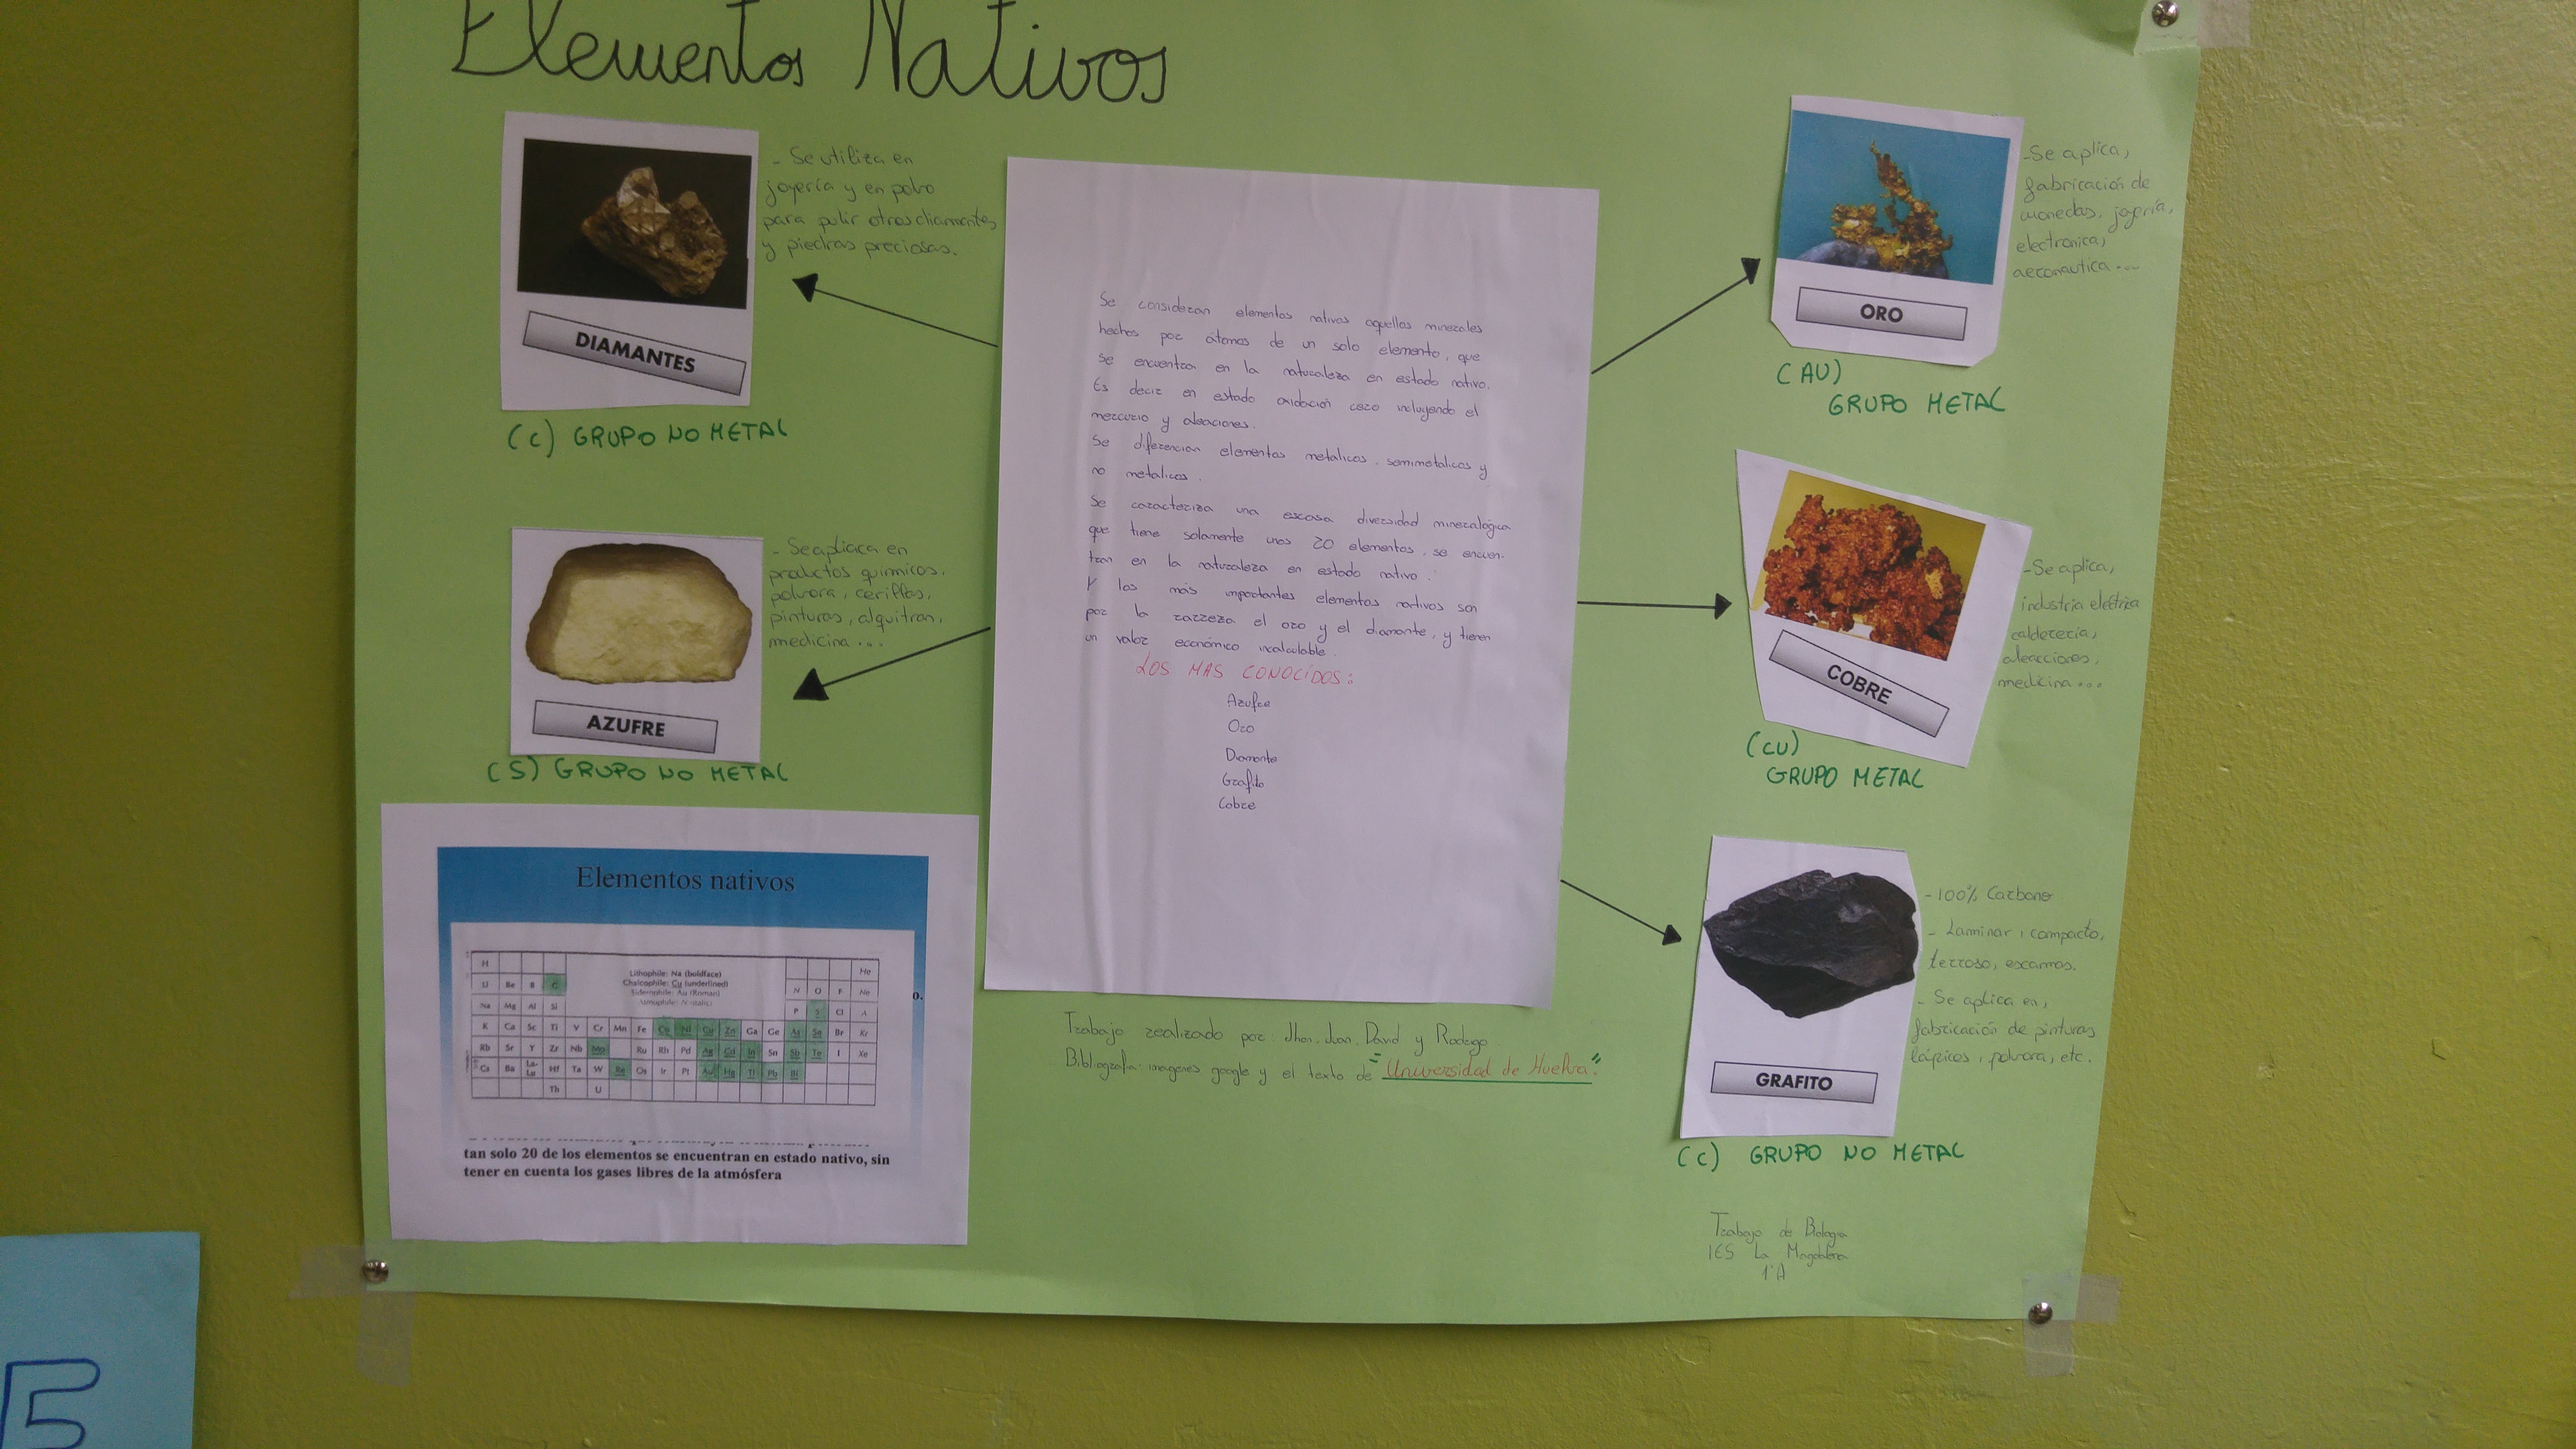 Elementos Nativos
- Se utiliza en
joyería y en polvo
para pulir otros diamantes
y piedras preciosas.
DIAMANTES
(C) GRUPO NO METAL
- Se apliaca en
productos quimicos,
polvora, cerillas,
pinturas, alquitran,
medicina...
AZUFRE
(S) GRUPO NO METAL
Se consideran elementos nativos aquellos minerales
hechos por átomos de un solo elemento, que
se encuentra en la naturaleza en estado nativo.
Es decir en estado oxidación cero incluyendo el
mercurio y aleaciones.
Se diferencian elementos metalicos, semimetalicos y
no metalicos.
Se caracteriza una escasa diversidad mineralógica
que tiene solamente unos 20 elementos, se encuen-
tran en la naturaleza en estado nativo.
Y los más importantes elementos nativos son
por la rarreza el oro y el diamante, y tienen
un valor económico incalculable.
LOS MAS CONOCIDOS:
Azufre
Oro
Diamante
Grafito
Cobre
- Se aplica,
fabricación de
monedas, joyría,
electronica,
aeronautica...
ORO
(AU)
GRUPO METAL
- Se aplica,
industria eléctrica
calderería,
aleacciones,
medicina...
COBRE
(CU)
GRUPO METAL
- 100% Carbono
- Laminar, compacto,
terroso, escamas.
- Se aplica en,
fabricación de pinturas
lápices, polvora, etc.
GRAFITO
(C) GRUPO NO METAL
Elementos nativos
Lithophile: Na (boldface)
Chalcophile: Cu (underlined)
Siderophile: Au (Roman)
H He
Li Be B C N O F Ne
Na Mg Al Si P S Cl A
K Ca Sc Ti V Cr Mn Fe Co Ni Cu Zn Ga Ge As Se Br Kr
Rb Sr Y Zr Nb Mo Ru Rh Pd Ag Cd In Sn Sb Te I Xe
Cs Ba La-Lu Hf Ta W Re Os Ir Pt Au Hg Tl Pb Bi
Th U
o.
tan solo 20 de los elementos se encuentran en estado nativo, sin
tener en cuenta los gases libres de la atmósfera
Trabajo realizado por: Jhon, Juan, David y Rodrigo.
Bibliografa: imagenes google y el texto de "Universidad de Huelva."
Trabajo de Biologia
IES La Magdalena
1ºA
E